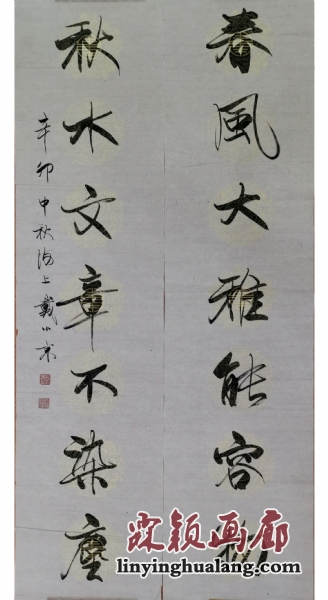 春風大雅能容物
秋水文章不染塵
辛卯中秋海上戴小京
霖颖画廊
linyinghualang.com